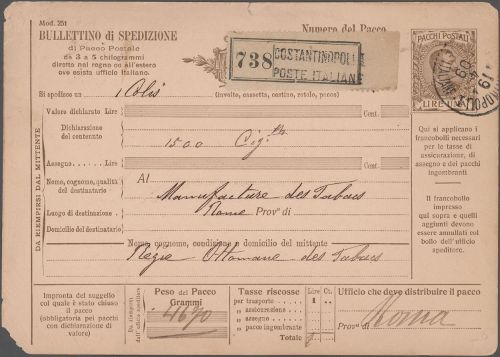 Mod. 251
BULLETTINO di SPEDIZIONE
di Pacco Postale
da 3 a 5 chilogrammi
diretto nel regno od all'estero
ove esista ufficio italiano.
Numero del Pacco
738
COSTANTINOPOLI
POSTE ITALIANE
PACCHI POSTALI
LIRE UNA
Si spedisce un 1 Colis (involto, cassetta, cestino, rotolo, pacco)
DA RIEMPIRSI DAL MITTENTE
Valore dichiarato Lire Cent.
Dichiarazione
del contenuto
1500 Cig.tes
Assegno Lire Cent.
Nome, cognome, qualità
del destinatario
Al
Manufacture des Tabacs
Luogo di destinazione
Rome Prov.ª di
Domicilio del destinatario
Nome, cognome, condizione e domicilio del mittente
Regie Ottomane des Tabacs
Qui si applicano i
francobolli necessari
per le tasse di
assicurazione, di
assegno e di pacchi
ingombranti
Il francobollo
impresso
qui sopra e quelli
aggiunti devono
essere annullati col
bollo dell'ufficio
speditore.
Impronta del suggello
col quale è stato chiuso
il pacco
(obbligatoria pei pacchi
con dichiarazione di
valore)
Da riempirsi
dall'ufficio speditore
Peso del Pacco
Grammi
4670
Tasse riscosse Lire Ct.
per trasporto 1
» assicurazione
» assegno
» pacco ingombrante
Totale
Ufficio che deve distribuire il pacco
Roma
Prov.ª di